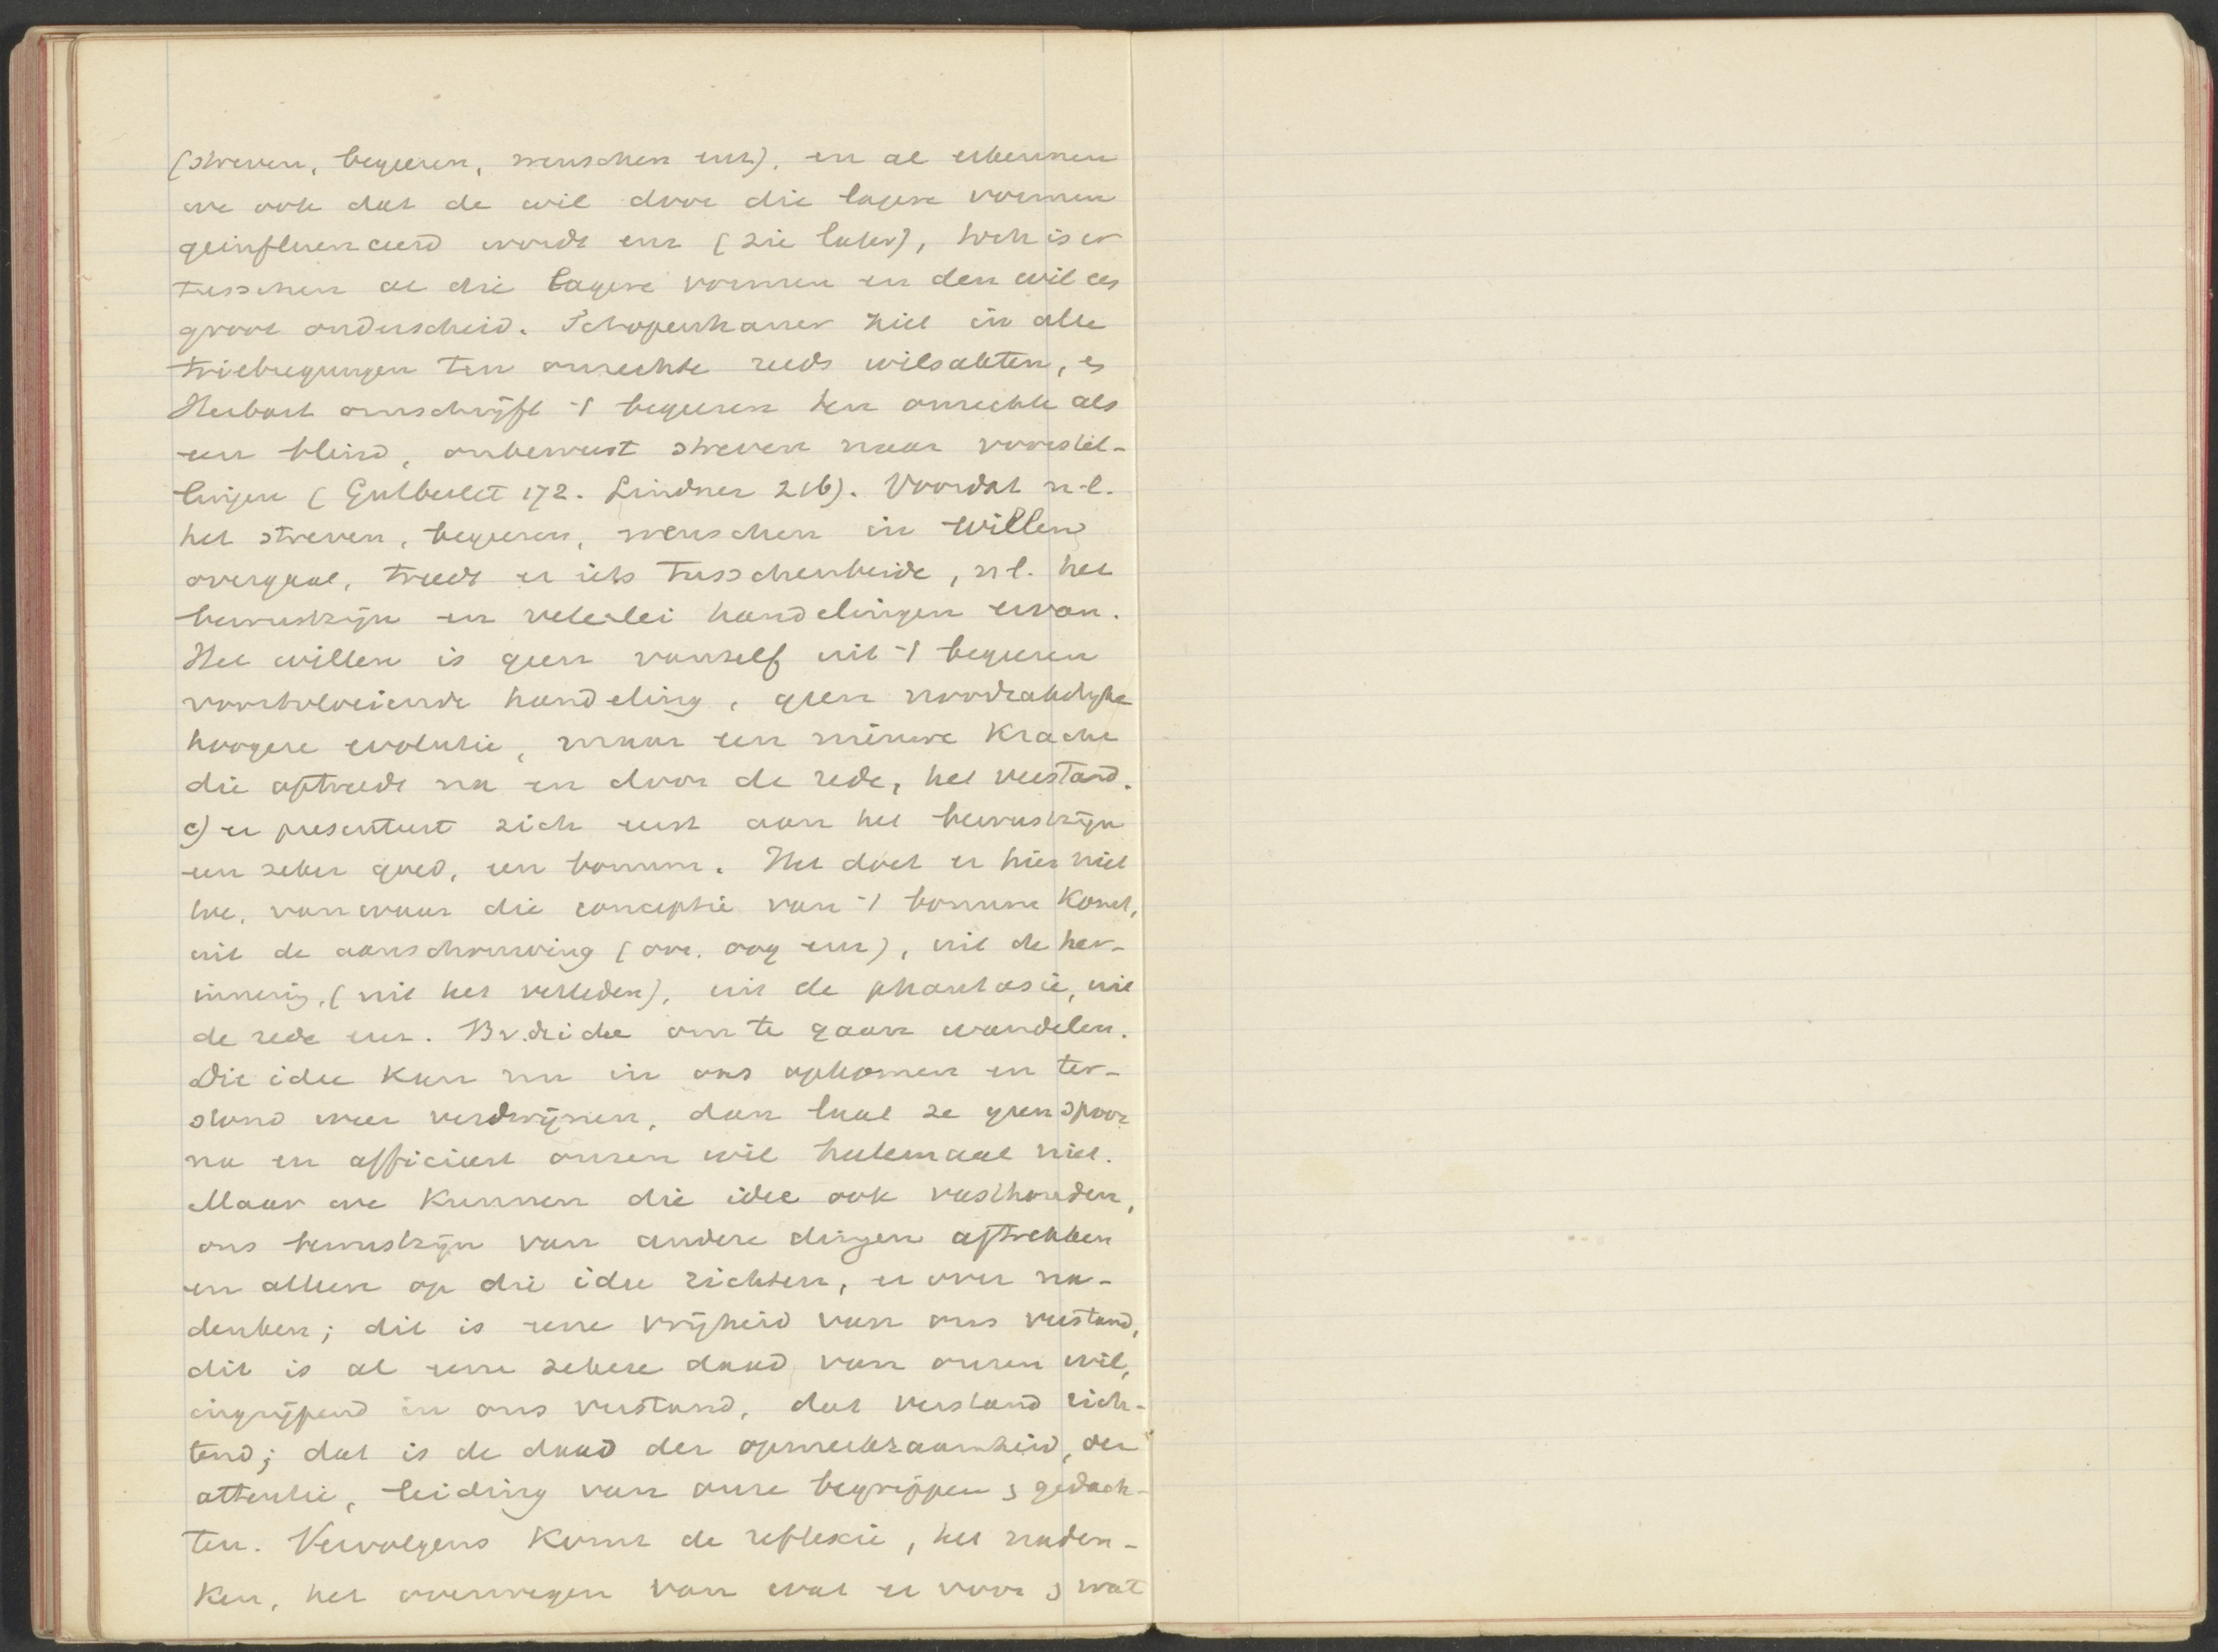 (streven, begeeren, wenschen enz), en al erkennen
we ook dat de wil door die lagere vormen
geinfluenceerd wordt enz (zie later), toch is er
tusschen al die lagere vormen en den wil een
groot onderscheid. Schopenhauer ziet in alle
triebregungen ten onrechte reeds wilsakten, en
Herbart omschrijft 't begeeren ten onrechte als
een blind, onbewust streven naar voorstel-
lingen (Gutberlet 172. Lindner 216). Voordat n.l.
het streven, begeeren, wenschen in willen
overgaat, treedt er iets tusschenbeide, nl. het
bewustzijn en velerlei handelingen ervan.
Het willen is geen vanzelf uit 't begeeren
voortvloeiende handeling, geen noodzakelijke
hoogere evolutie, maar een nieuwe kracht
die optreedt na en door de rede, het verstand.
c) er presenteert zich eerst aan het bewustzijn
een zeker goed, een bonum. Het doet er hier niet
toe, vanwaar die conceptie van 't bonum komt,
uit de aanschouwing (oor. oog enz), uit de her-
innering, (uit het verleden), uit de phantasie, uit
de rede enz. Bv. de idee om te gaan wandelen.
Die idee kan nu in ons opkomen en ter-
stond weer verdwijnen, dan laat ze geen spoor
na en afficieert onzen wil heelemaal niet.
Maar we kunnen die idee ook vasthouden,
ons bewustzijn van andere dingen aftrekken
en alleen op die idee richten, er over na-
denken; dit is eene vrijheid van ons verstand,
dit is al eene zekere daad van onzen wil,
ingrijpend in ons verstand, dat verstand rich-
tend; dat is de daad der opmerkzaamheid, der
attentie, leiding van onze begrippen en gedach-
ten. Vervolgens komt de reflexie, het naden-
ken, het overwegen van wat er voor en wat